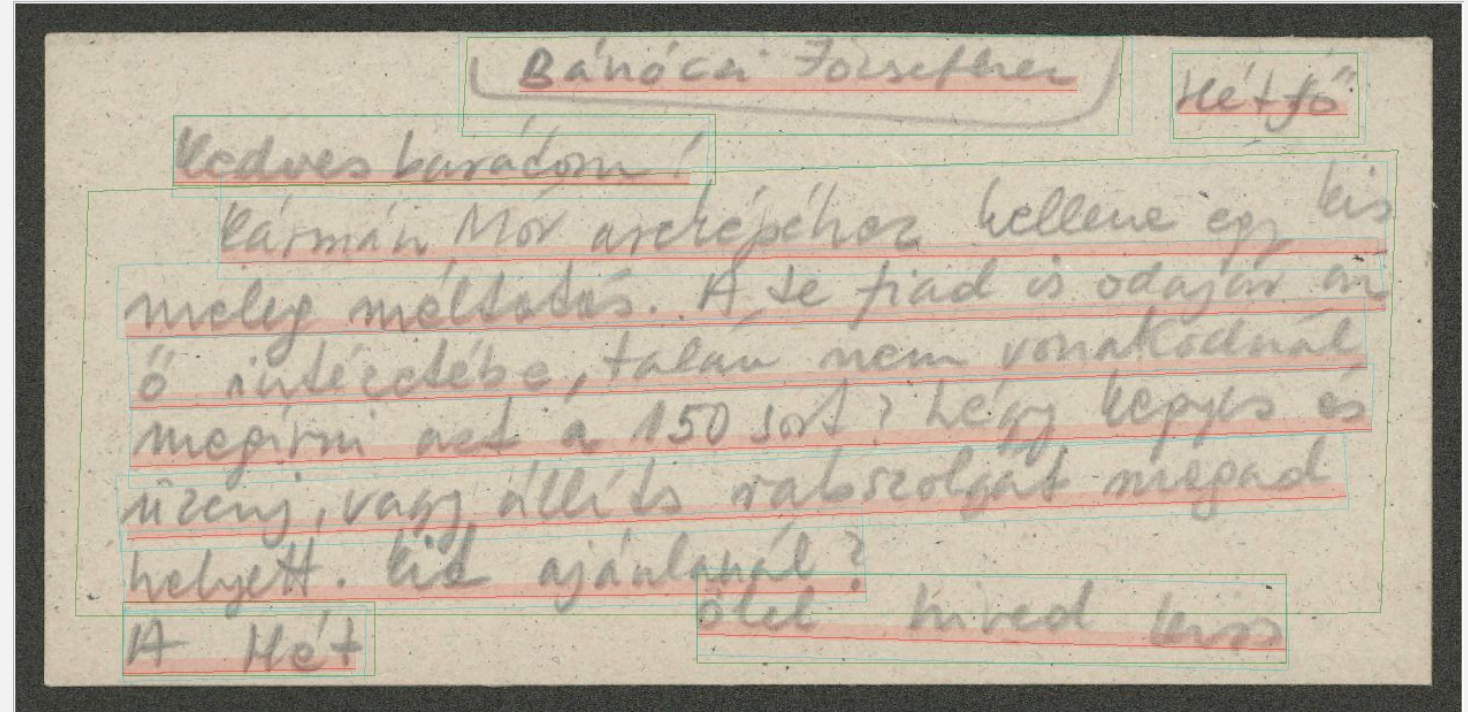 Bánóczi Józsefnek
Hétfő
Kedves barátom!
Kármán Mór arcképéhez kellene egy kis
meleg méltatás. A te fiad is odajár az
ő intézetébe, talán nem vonakodnál
megírni azt a 150 sort? Légy kegyes és
üzenj, vagy állíts rabszolgát magad
helyett. Kit ajánlanál?
Ölel hived Kiss
A Hét